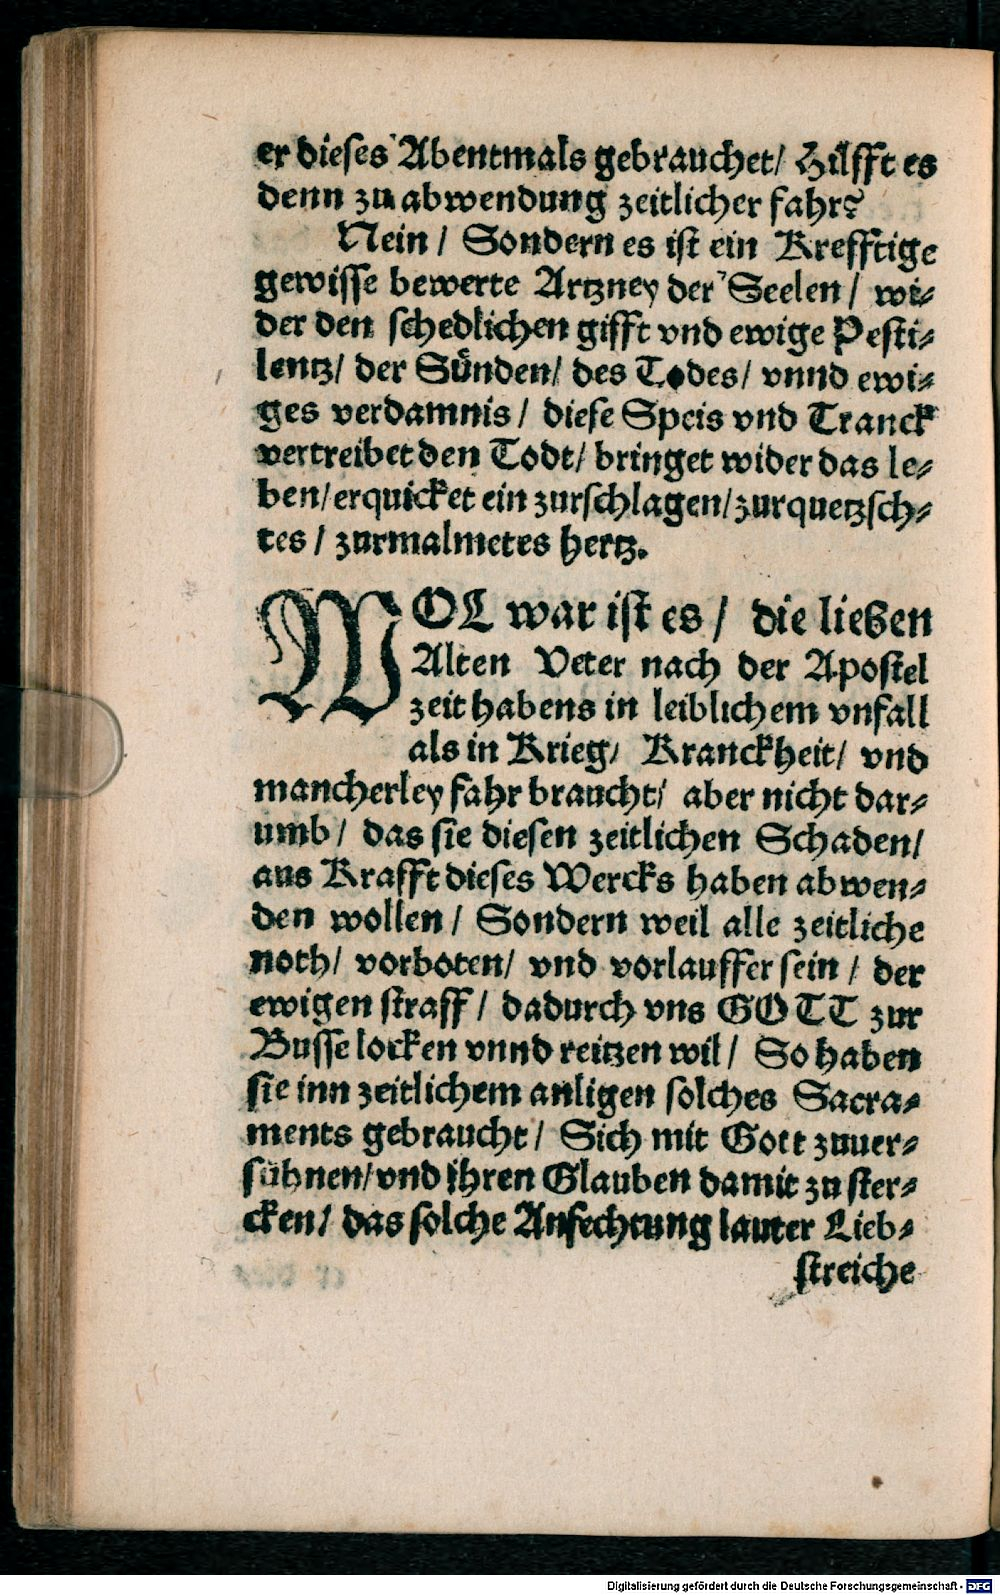 er dieses Abentmals gebrauchet/ Hilfft es
denn zu abwendung zeitlicher fahr?
Nein / Sondern es ist ein Krefftige
gewisse bewerte Artzney der Seelen / wi⸗
der den schedlichen gifft vnd ewige Pesti⸗
lentz/ der Sünden/ des Todes/ vnnd ewi⸗
ges verdamnis / diese Speis vnd Tranck
vertreibet den Todt/ bringet wider das le⸗
ben/ erquicket ein zurschlagen/ zurquetzsch⸗
tes / zurmalmetes hertz.
WOL war ist es / die lieben
Alten Veter nach der Apostel
zeit habens in leiblichem vnfall
als in Krieg/ Kranckheit/ vnd
mancherley fahr braucht/ aber nicht dar⸗
umb / das sie diesen zeitlichen Schaden/
aus Krafft dieses Wercks haben abwen⸗
den wollen / Sondern weil alle zeitliche
noth/ vorboten/ vnd vorlauffer sein / der
ewigen straff / dadurch vns GOTT zur
Busse locken vnnd reitzen wil / So haben
sie inn zeitlichem anligen solches Sacra⸗
ments gebraucht / Sich mit Gott zuuer⸗
sühnen/ vnd ihren Glauben damit zu ster⸗
cken/ das solche Anfechtung lauter Lieb⸗
streiche
Digitalisierung gefördert durch die Deutsche Forschungsgemeinschaft - DFG